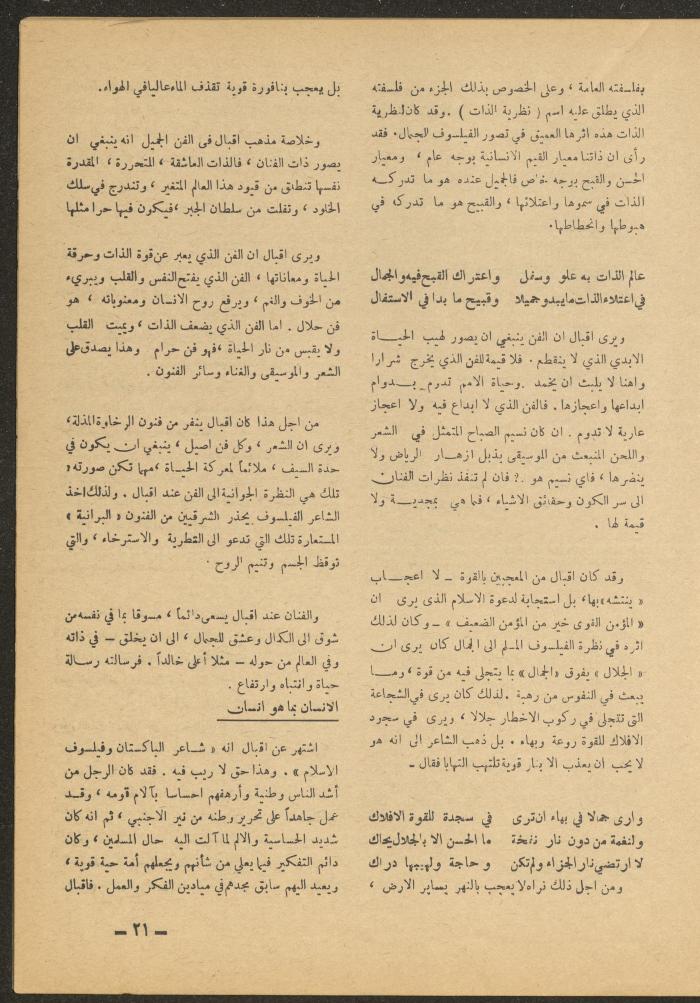 بفلسفته العامة ، وعلى الخصوص بذلك الجزء من فلسفته
الذي يطلق عليه اسم ( نظرية الذات ) . وقد كان لنظرية
الذات هذه اثرها العميق في تصور الفيلسوف للجمال . فقد
رأى ان ذاتنا معيار القيم الانسانية بوجه عام ، ومعيار
الحسن والقبح بوجه خاص فالجميل عنده هو ما تدركه
الذات في سموها واعتلائها ، والقبيح هو ما تدركه في
هبوطها وانحطاطها .
عالم الذات به علو وسفل واعتراك القبح فيه والجمال
في اعتلاء الذات ما يبدو جميلا وقبيح ما بدا في الاستفال
ويرى اقبال ان الفن ينبغي ان يصور لهيب الحياة
الابدي الذي لا ينقطع . فلا قيمة للفن الذي يخرج شرارا
واهنا لا يلبث ان يخمد . وحياة الامم تدوم بدوام
ابداعها واعجازها . فالفن الذي لا ابداع فيه ولا اعجاز
عارية لا تدوم . ان كان نسيم الصباح المتمثل في الشعر
واللحن المنبعث من الموسيقى يذبل ازهار الرياض ولا
ينضرها ، فاي نسيم هو ? فان لم تنفذ نظرات الفنان
الى سر الكون وحقائق الاشياء ، فما هي بمجدية ولا
قيمة لها .
وقد كان اقبال من المعجبين بالقوة – لا اعجاب
« ينتشه » بها ، بل استجابة لدعوة الاسلام الذى يرى ان
« المؤمن القوى خير من المؤمن الضعيف » – وكان لذلك
اثره في نظرة الفيلسوف المسلم الى الجمال كان يرى ان
« الجلال » يفوق « الجمال » بما يتجلى فيه من قوة ، وما
يبعث في النفوس من رهبة . لذلك كان يرى في الشجاعة
التى تتجلى في ركوب الاخطار جلالا ، ويرى في سجود
الافلاك للقوة روعة وبهاء . بل ذهب الشاعر الى انه هو
لا يحب ان يعذب الا بنار قوية تلتهب التهابا فقال –
وارى جمالا في بهاء ان ترى في سجدة للقوة الافلاك
ولنغمة من دون نار نفخة ما الحسن الا بالجلال يحاك
لا ارتضي نار الجزاء ولم تكن وحاجة ولهيبها دراك
ومن اجل ذلك نراه لا يعجب بالنهر يساير الارض ،
بل يعجب بنافورة قوية تقذف الماء عاليا في الهواء .
وخلاصة مذهب اقبال فى الفن الجميل انه ينبغي ان
يصور ذات الفنان ، فالذات العاشقة ، المتحررة ، المقدرة
نفسها تنطلق من قيود هذا العالم المتغير ، وتندرج في سلك
الخلود ، وتفلت من سلطان الجبر ، فيكون فيها حرا مثلها
ويرى اقبال ان الفن الذي يعبر عن قوة الذات وحرقة
الحياة ومعاناتها ، الفن الذي يفتح النفس والقلب ويبريء
من الخوف والغم ، ويرفع روح الانسان ومعنوياته ، هو
فن حلال . اما الفن الذي يضعف الذات ، ويميت القلب
ولا يقبس من نار الحياة ، فهو فن حرام وهذا يصدق على
الشعر والموسيقى والغناء وسائر الفنون .
من اجل هذا كان اقبال ينفر من فنون الرخاوة المذلة ،
ويرى ان الشعر ، وكل فن اصيل ، ينبغي ان يكون في
حدة السيف ، ملائماً لمعركة الحياة ، مهما تكن صورته ،
تلك هي النظرة الجوانية الى الفن عند اقبال . ولذلك اخذ
الشاعر الفيلسوف يحذر الشرقيين من الفنون « البرانية »
المستعارة تلك التي تدعو الى التطرية والاسترخاء ، والتي
توقظ الجسم وتنيم الروح .
والفنان عند اقبال يسعى دائماً ، مسوقا بما في نفسه من
شوق الى الكمال وعشق للجمال ، الى ان يخلق – في ذاته
وفي العالم من حوله – مثلا أعلى خالداً . فرسالته رسالة
حياة وانتباه وارتفاع .
الانسان بما هو انسان
اشتهر عن اقبال انه « شاعر الباكستان وفيلسوف
الاسلام » . وهذا حق لا ريب فيه . فقد كان الرجل من
أشد الناس وطنية وأرهفهم احساسا بآلام قومه ، وقد
عمل جاهداً على تحرير وطنه من نير الاجنبي ، ثم انه كان
شديد الحساسية والالم لما آلت اليه حال المسلمين ، وكان
دائم التفكير فيما يعلي من شأنهم ويجعلهم أمة حية قوية ،
ويعيد اليهم سابق مجدهم في ميادين الفكر والعمل . فاقبال
– ٢١ –